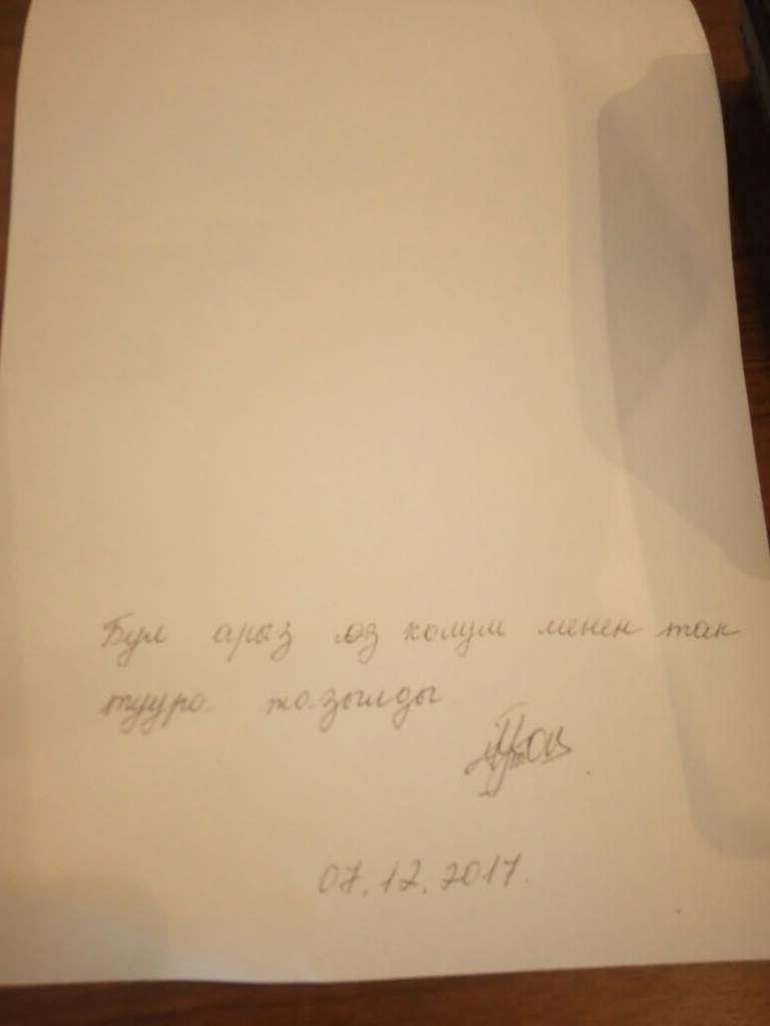 Бул арыз өз колум менен так
туура жазылды
07.12.2017.